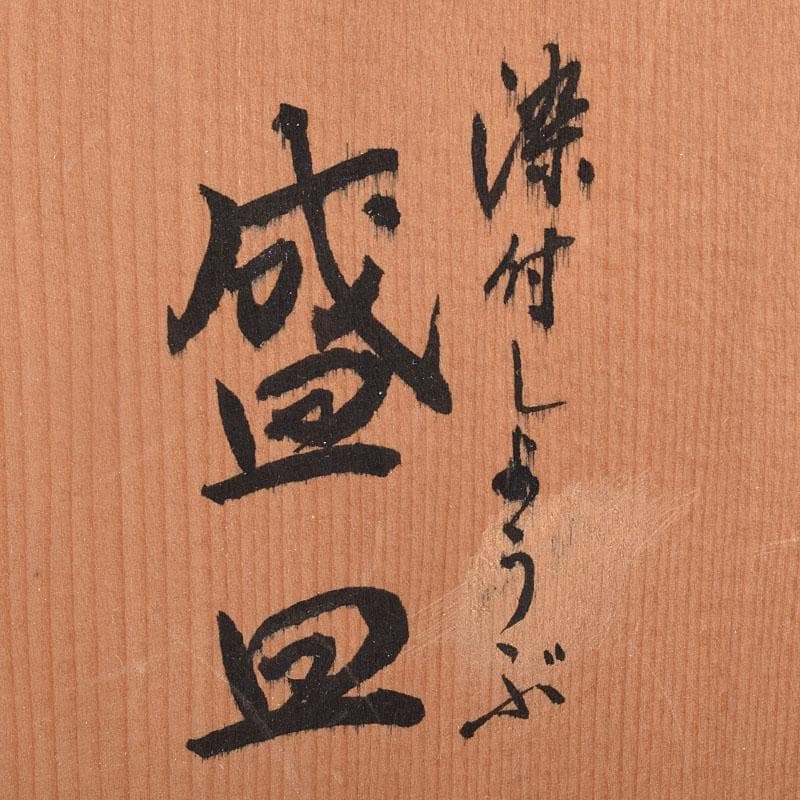 染付しようぶ
盛皿